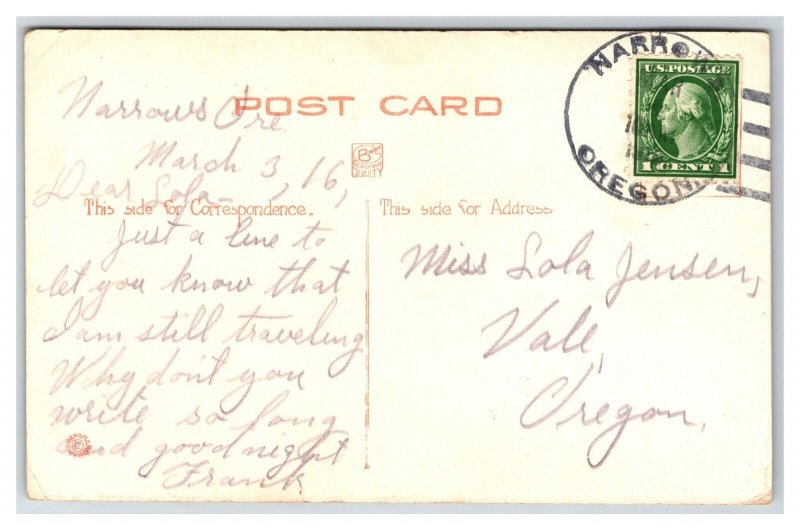 POST CARD
Narrows Ore
March 3, 16,
Dear Lola
This side for Correspondence.
Just a line to
let you know that
I am still traveling
Why don't you
write so long
and goodnight
Frank
BS
BERGMAN
QUALITY
This side for Address
Miss Lola Jensen,
Vale,
Oregon,
NARROWS
OREGON
U.S. POSTAGE
1 CENT 1